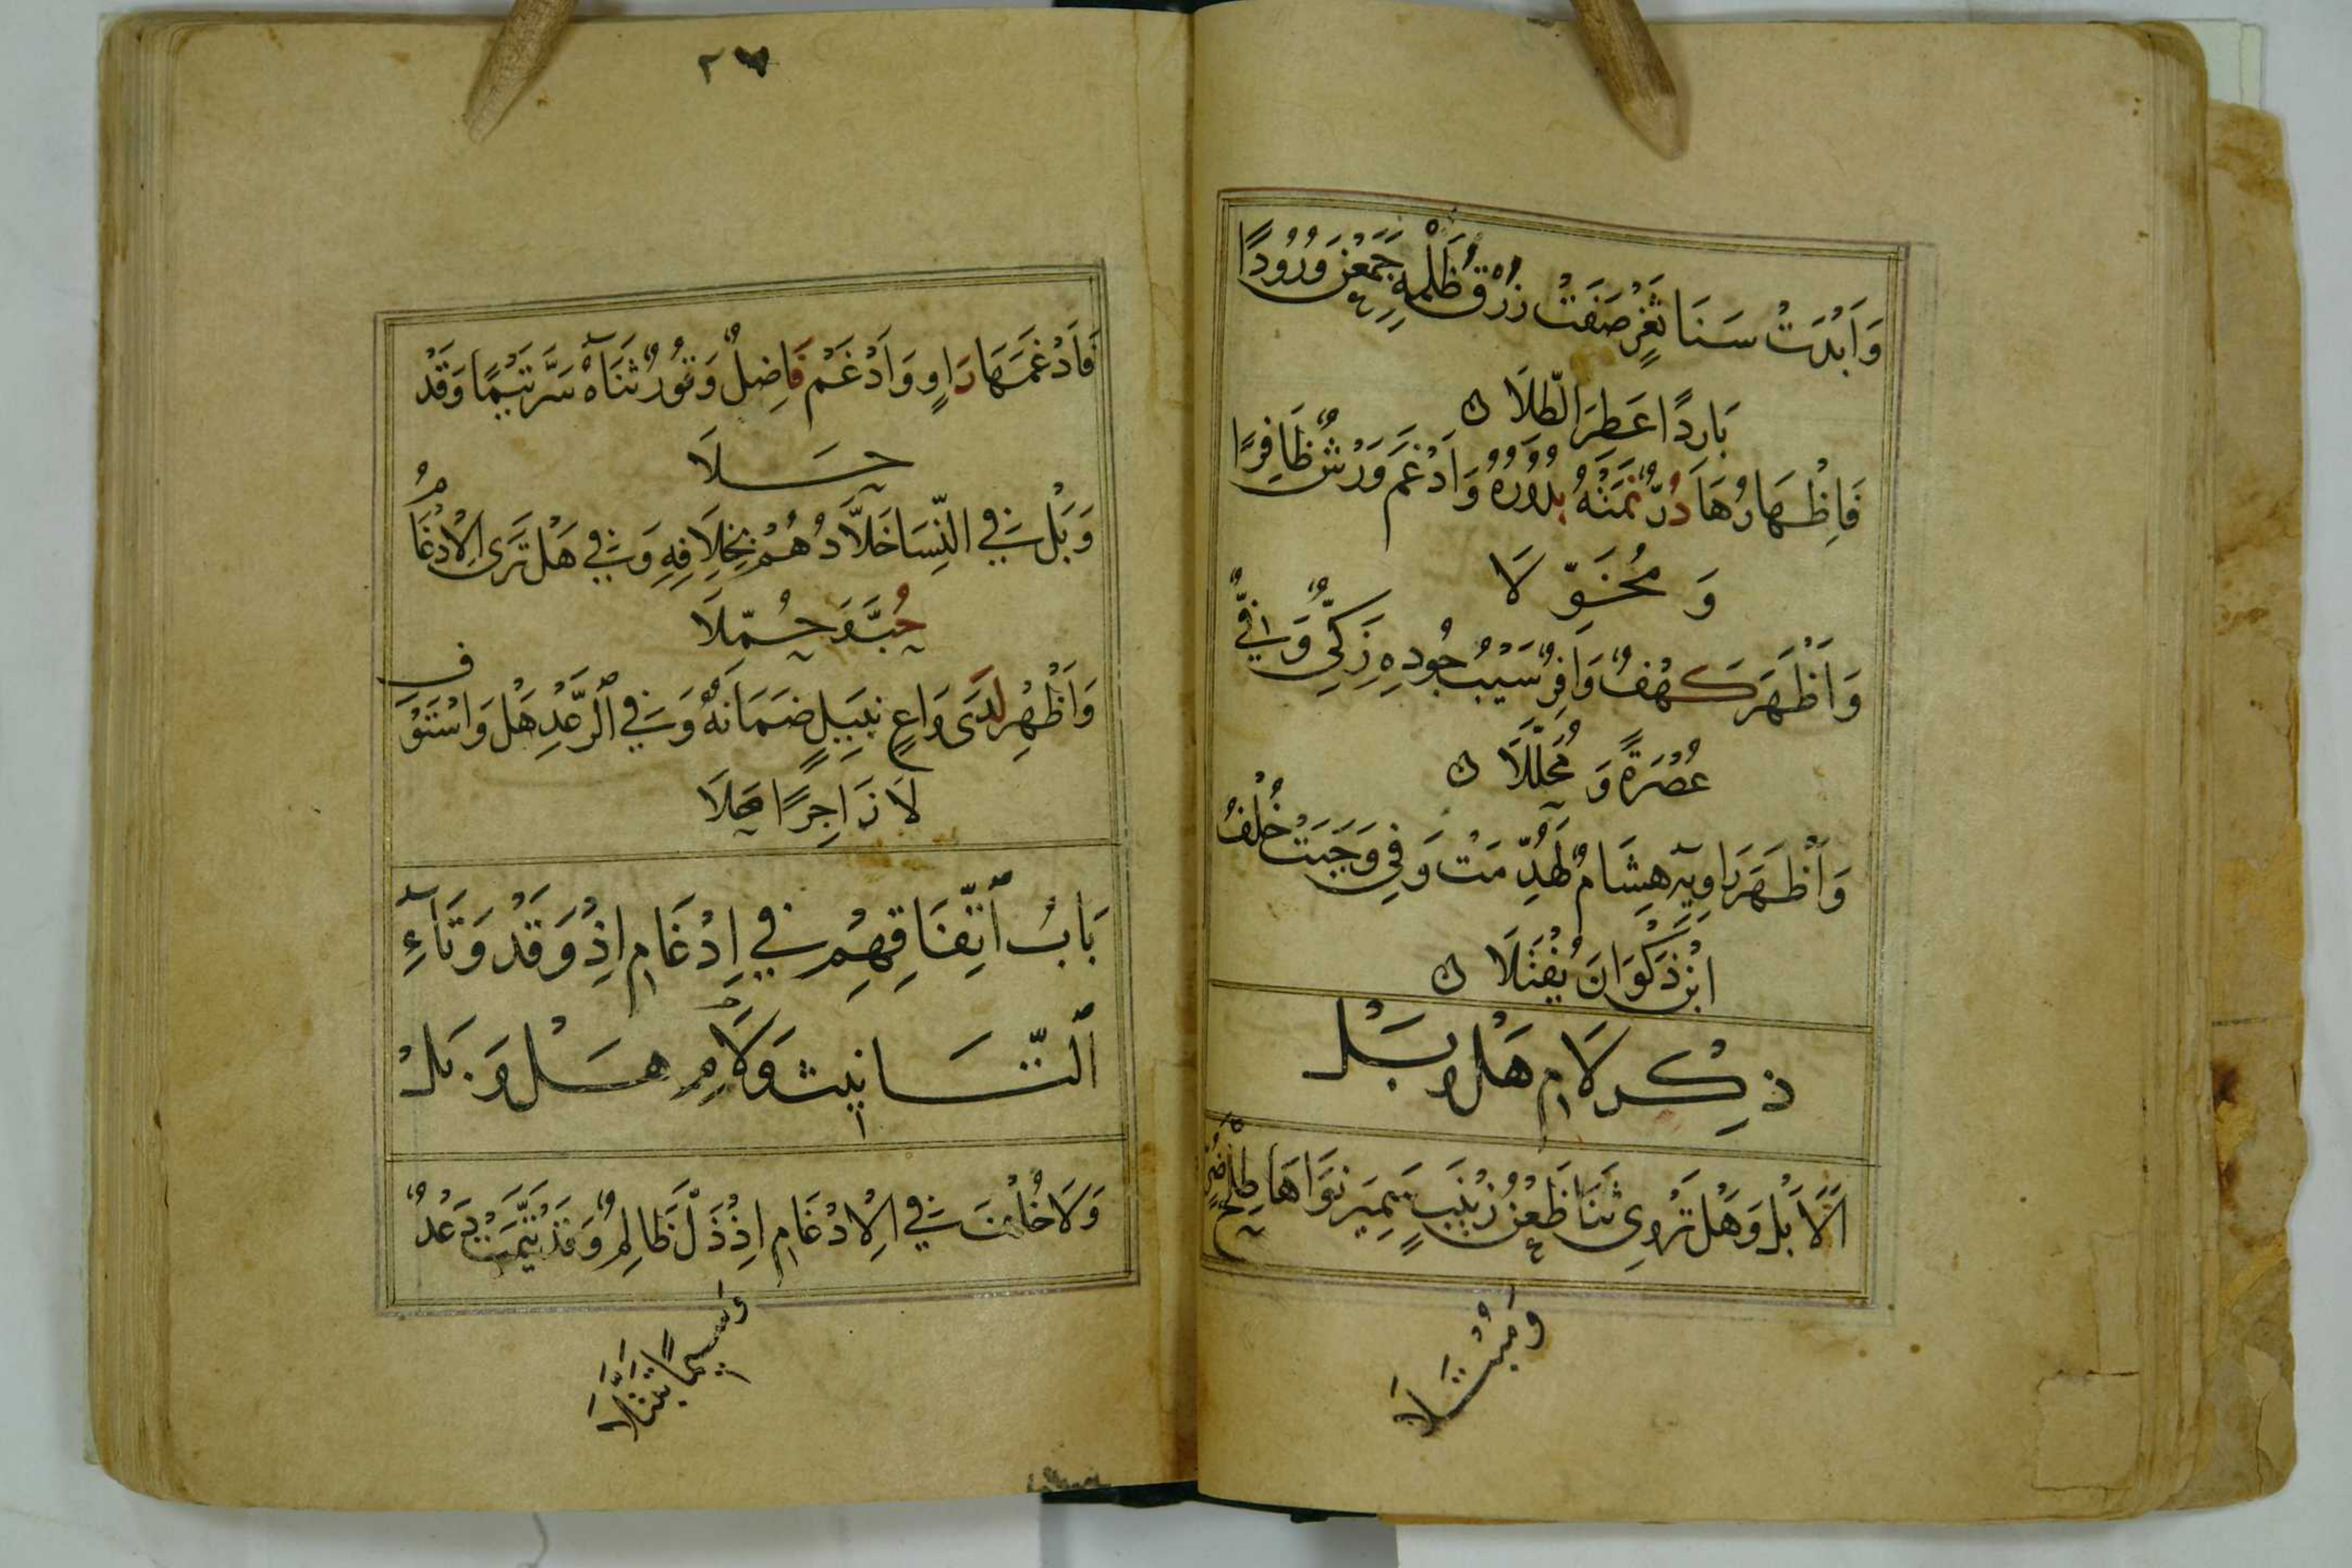 وَاَبْدَتْ سَنَا ثَغْرٍ صَفَتْ زُرْقُ ظَلْمِهِ جَمَعْنَ وُرُودًا
بَارِدًا عَطِرَ الطِّلَا ن
فَاِظْهَارُهَا دُرٌّ نَمَتْهُ بُدُورُهُ وَاَدْغَمَ وَرْشٌ ظَافِرًا
وَ مُخَوِّ لَا
وَاَظْهَرَ كَهْفٌ وَافِرٌ سَيْبُ جُودِهِ زَكِيٌّ وَفِيٌّ
عُصْرَةً وَ مُحَلَّلَا ن
وَاَظْهَرَ رَاوِيهِ هِشَامٌ لَهُدِّمَتْ وَفِي وَجَبَتْ خُلْفُ
ابْنِ ذَكْوَانَ يُفْتَلَا ن
ذِكْر لَام هَلْ وَ بَلْ
اَلَا بَلْ وَهَلْ تَرْوِى ثَنَا ظَعْنِ زَيْنَبٍ سَمِيرَ نَوَاهَا طِلْحَ ضُرٍّ
وَمُبْتَلَا
٢٧
فَاَدْغَمَهَا رَاوٍ وَاَدْغَمَ فَاضِلٌ وَقُورٌ ثَنَاهُ سَرَّ تَيْمًا وَقَدْ
حَلَا
وَبَلْ فِي النِّسَا خَلَّادُهُمْ بِخِلَافِهِ وَفِي هَلْ تَرَى الْاِدْغَامُ
حُبَّ وَ حُمِّلَا
وَاَظْهِرْ لَدَى وَاعٍ نَبِيلٍ ضَمَانُهُ وَفِي الرَّعْدِ هَلْ وَاسْتَوْفِ
لَا زَاجِرًا هَلَا
بَابُ اتِّفَاقِهِمْ فِي اِدْغَامِ اِذْ وَقَدْ وَتَآءِ
التَّانِيث وَلَامِ هَلْ وَ بَلْ
وَلَا خُلْفَ فِي الْاِدْغَامِ اِذْ ذَلَّ ظَالِمٌ وَقَدْ تَيَّمَتْ دَعْدٌ
وَسِيمًا تَبَتَّلَا